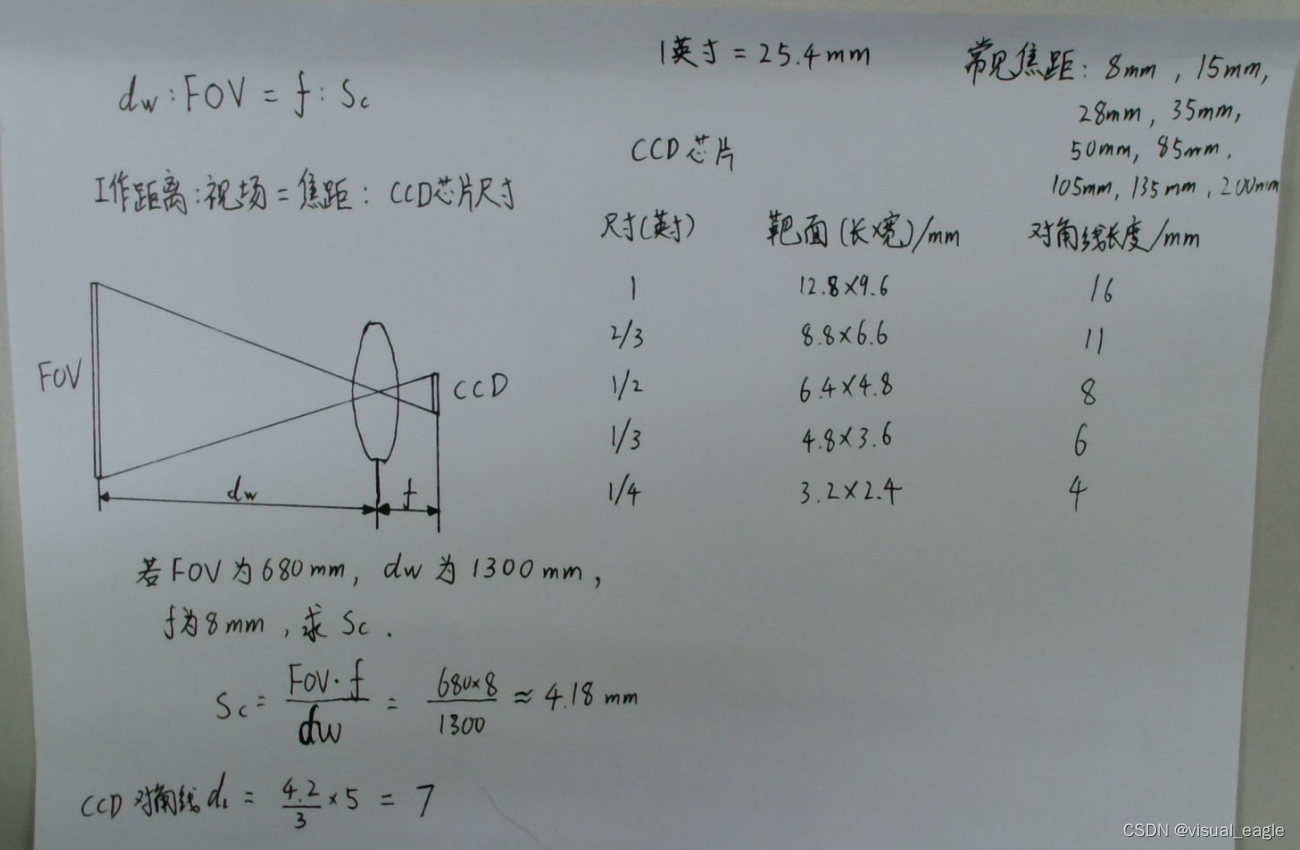 dw : FOV = f : Sc
工作距离:视场 = 焦距: CCD芯片尺寸
FOV
CCD
dw
f
1英寸 = 25.4mm
常见焦距: 8mm , 15mm,
28mm , 35mm,
50mm, 85mm,
105mm, 135mm , 200mm
CCD芯片
尺寸(英寸) 靶面 (长×宽)/mm 对角线长度/mm
1 12.8×9.6 16
2/3 8.8×6.6 11
1/2 6.4×4.8 8
1/3 4.8×3.6 6
1/4 3.2×2.4 4
若FOV为680mm, dw为1300mm,
f为8mm , 求 Sc .
Sc = FOV·f / dw = 680×8 / 1300 ≈ 4.18 mm
CCD 对角线 d₁ = 4.2 / 3 ×5 = 7
CSDN @visual_eagle